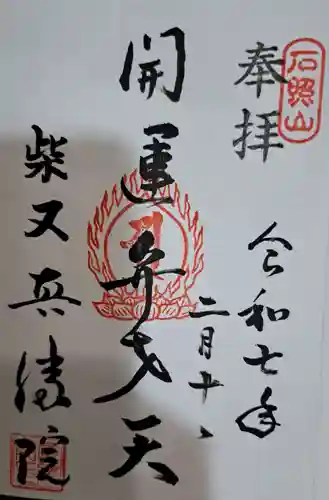 石照山
奉拝
令和七年
二月十
開運弁才天
柴又真勝院